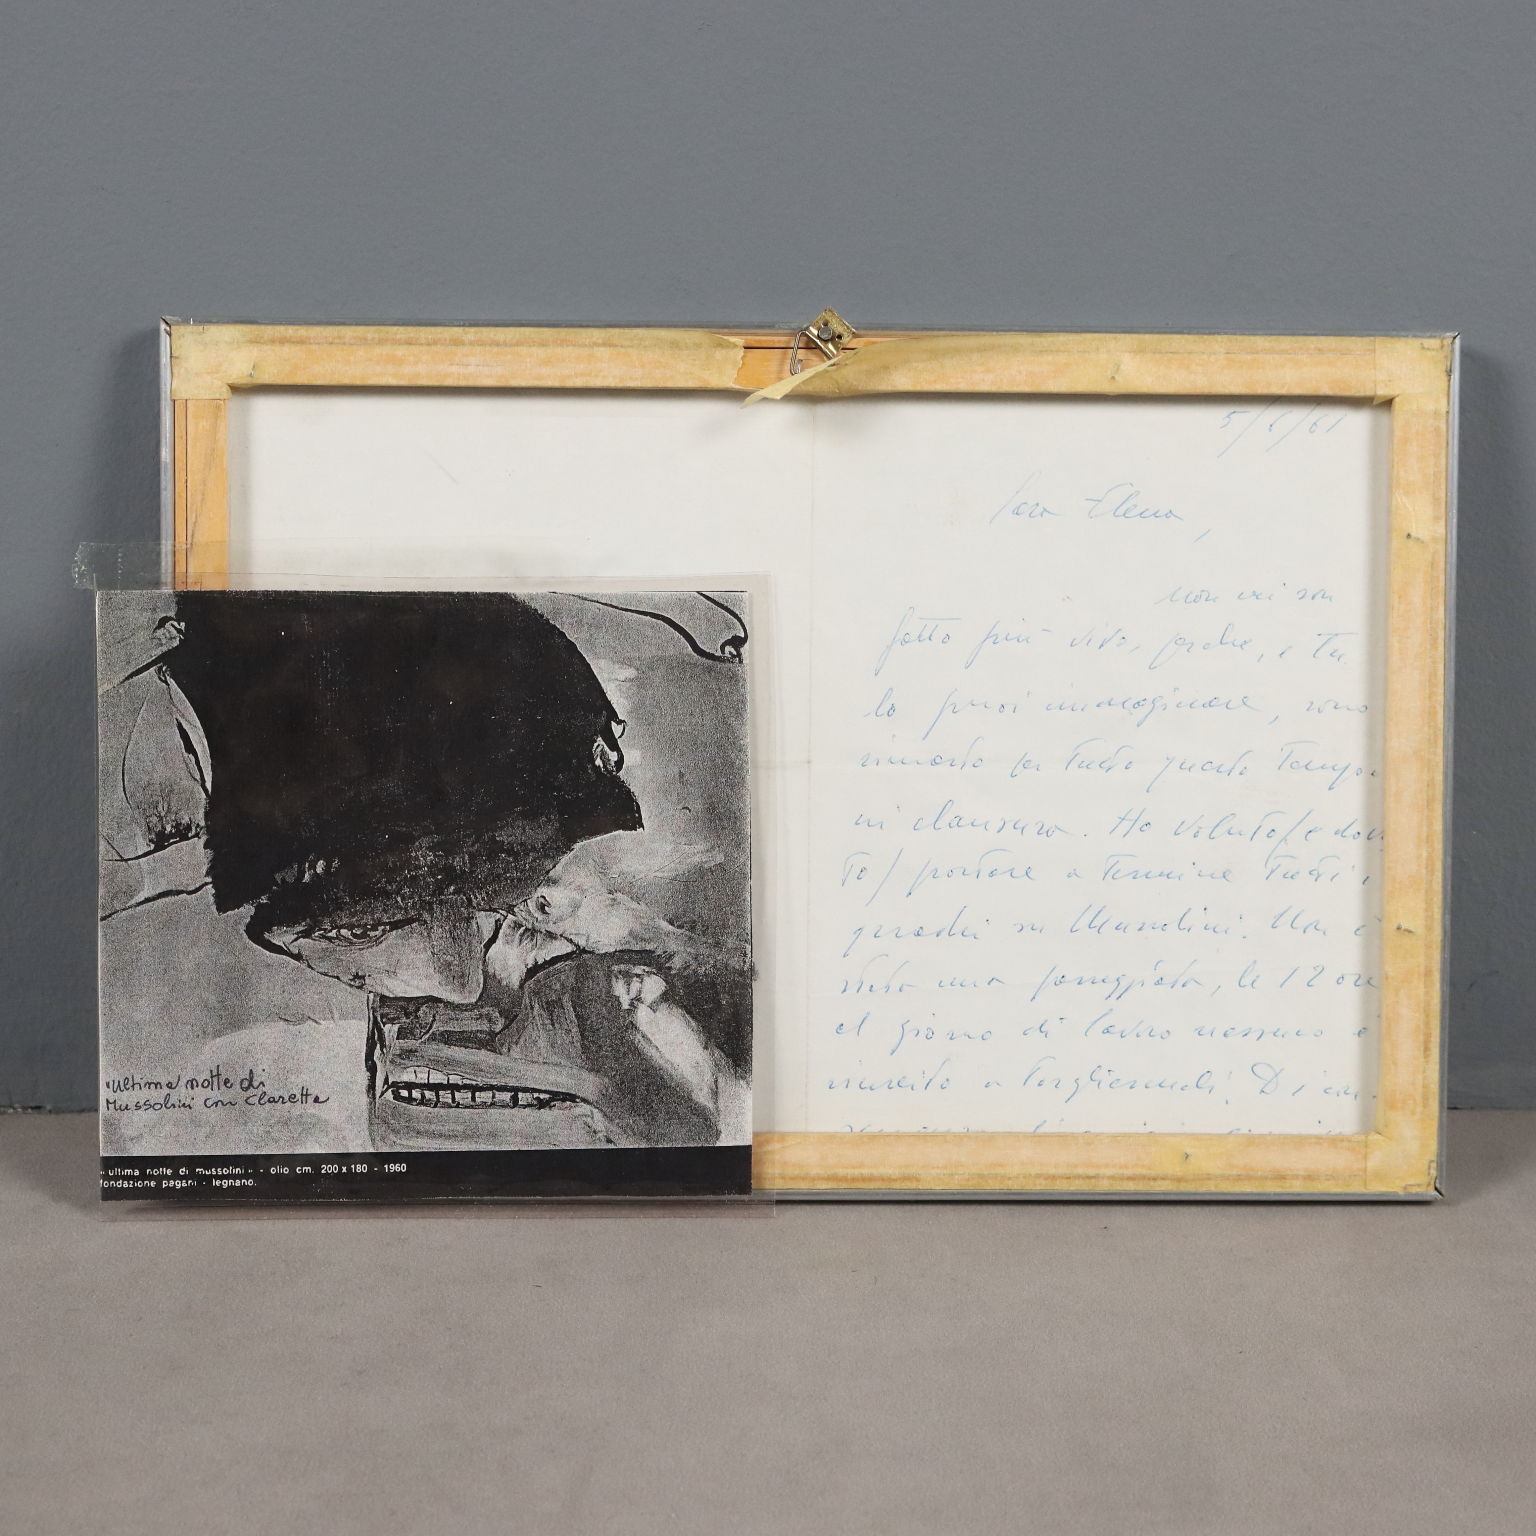 5/6/61
Cara Elena,
Non mi son
fatto più vivo, perché, e Tu
lo puoi immaginare, sono
rimasto per tutto questo tempo
in clausura. Ho voluto/e dovu
to/ portare a termine tutti i
quadri su Mussolini. Non è
stata una passeggiata, le 12 ore
al giorno di lavoro nessuno è
riuscito a togliermele.
"ultima notte di
Mussolini con Claretta
« ultima notte di mussolini » - olio cm. 200 x 180 - 1960
fondazione pagani - legnano.